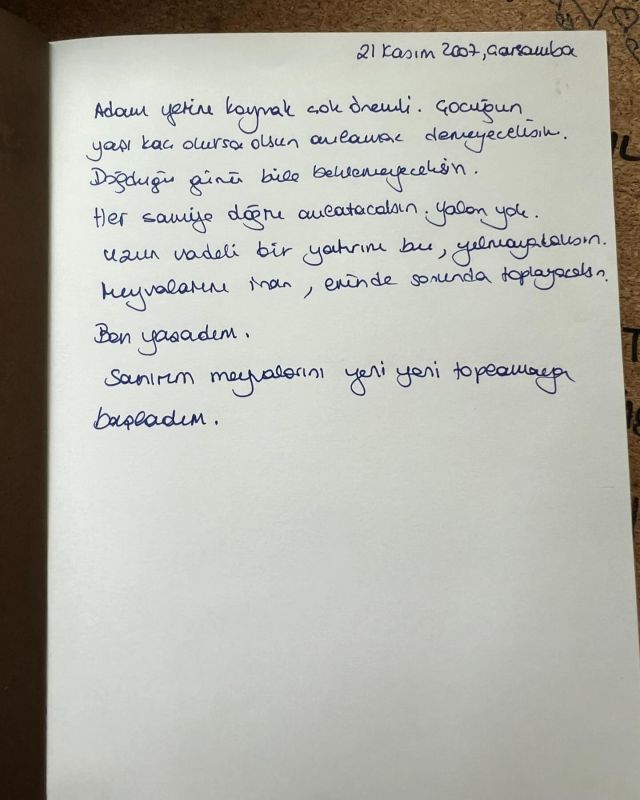 21 Kasım 2007, Çarşamba
Adam yerine koymak çok önemli. Çocuğun
yaşı kaç olursa olsun anlamaz demeyeceksin.
Doğduğu günü bile beklemeyeceksin.
Her saniye doğru anlatacaksın. Yalan yok.
Uzun vadeli bir yatırım bu, yılmayacaksın.
Meyvalarını inan, eninde sonunda toplayacaksın.
Ben yaşadım.
Sanırım meyvalarını yeni yeni toplamaya
başladım.